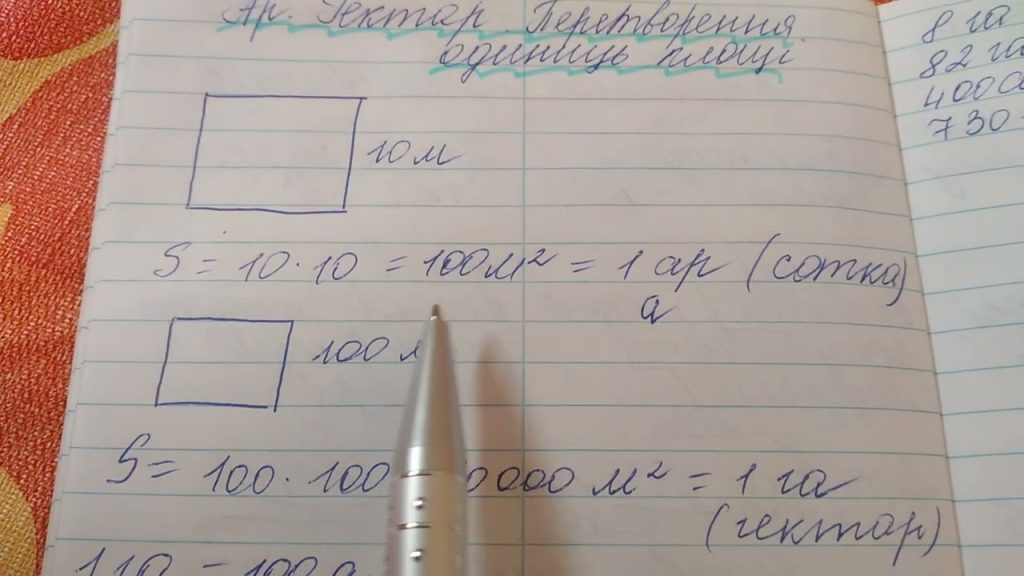 Ар. Гектар. Перетворення
одиниць площі
10 м
S = 10 · 10 = 100 м² = 1 ар (сотка)
а
100 м
S = 100 · 100 0000 м² = 1 га
(гектар)
1 га = 100 а
8 га
82 га
400
730